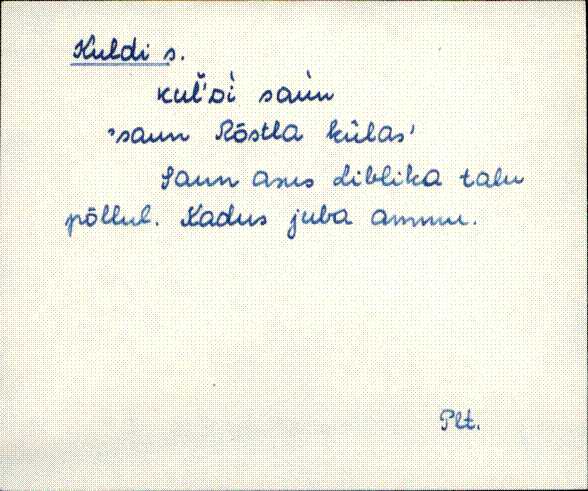 Kuldi s.
kuľ̆ᴅì saùn
'saun Rõstla külas'
Saun asus Liblika talu
põllul. Kadus juba ammu.
Plt.